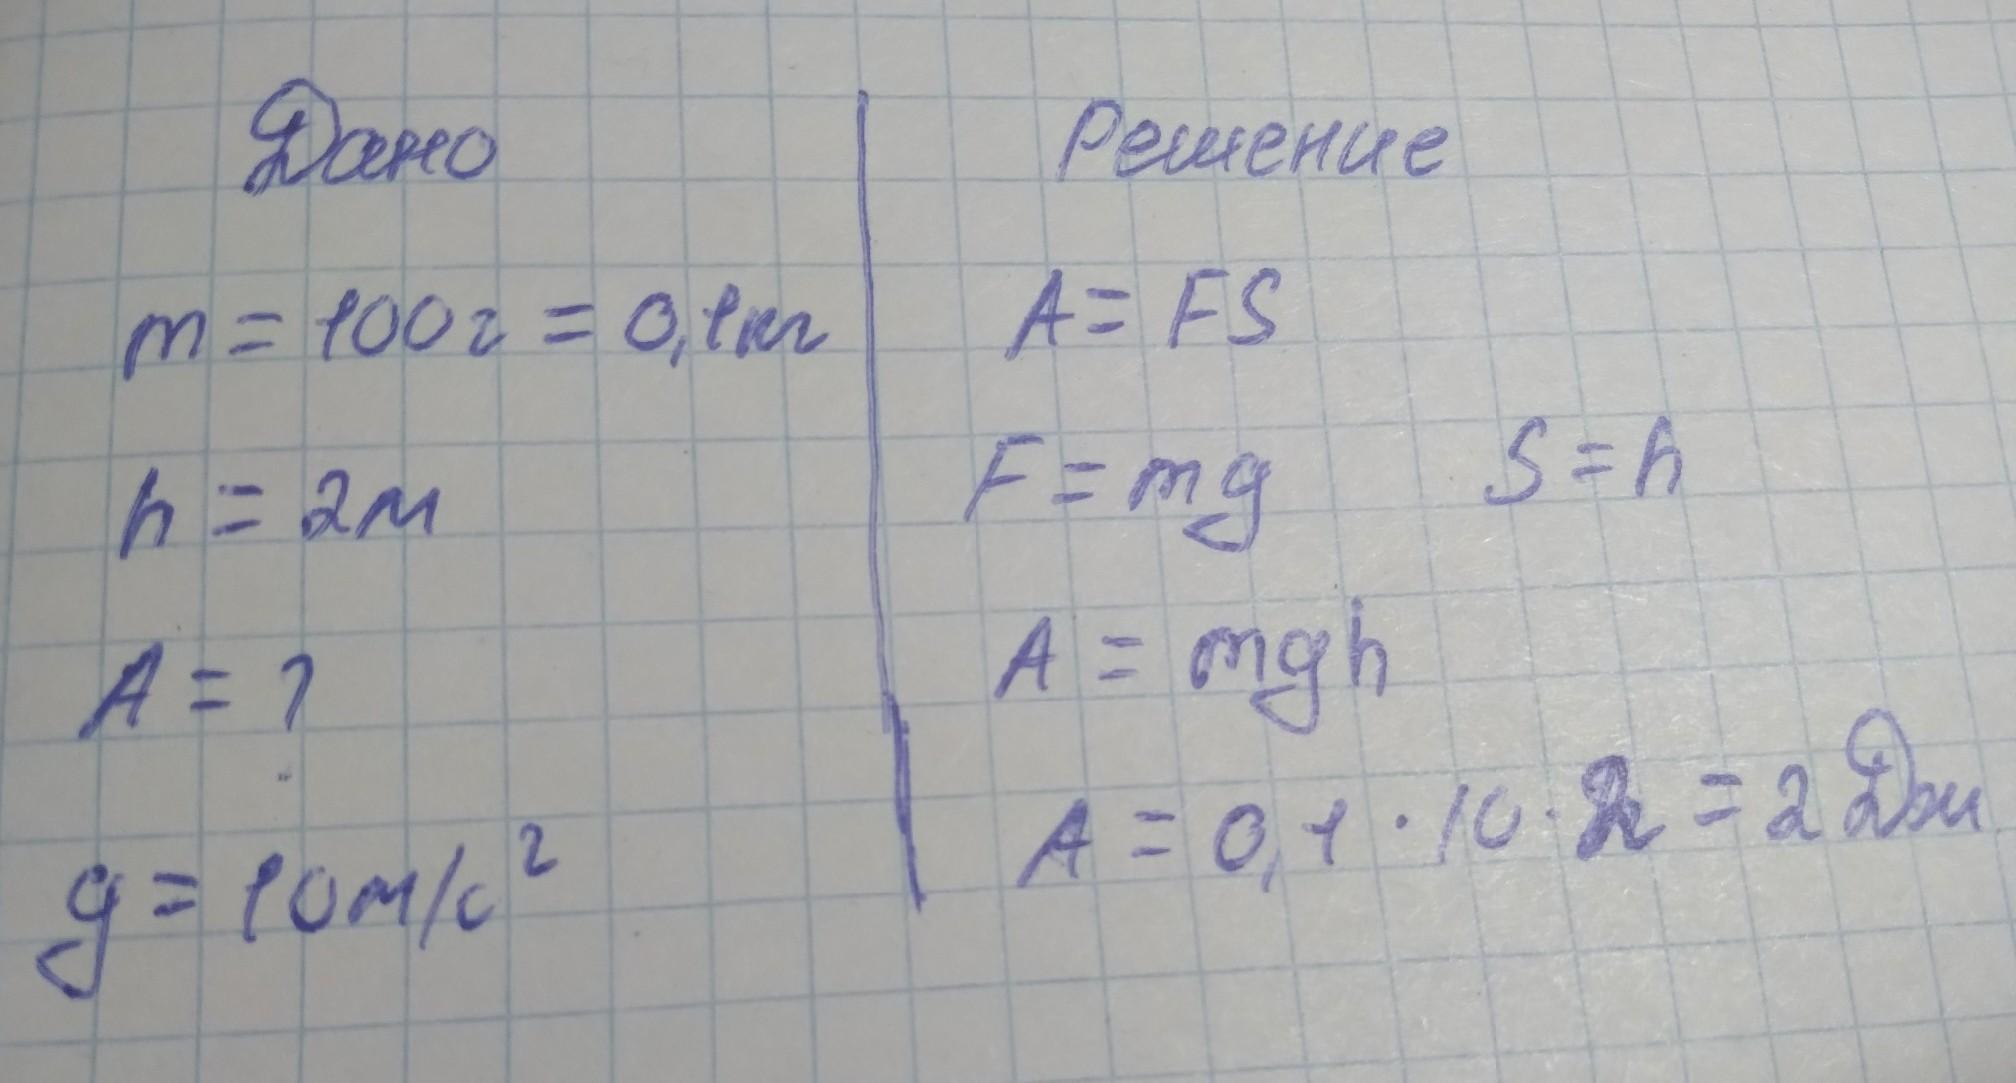 Дано
m = 100г = 0,1кг
h = 2м
A = ?
g = 10м/с²
Решение
A = FS
F = mg S = h
A = mgh
A = 0,1 · 10 · 2 = 2 Дж